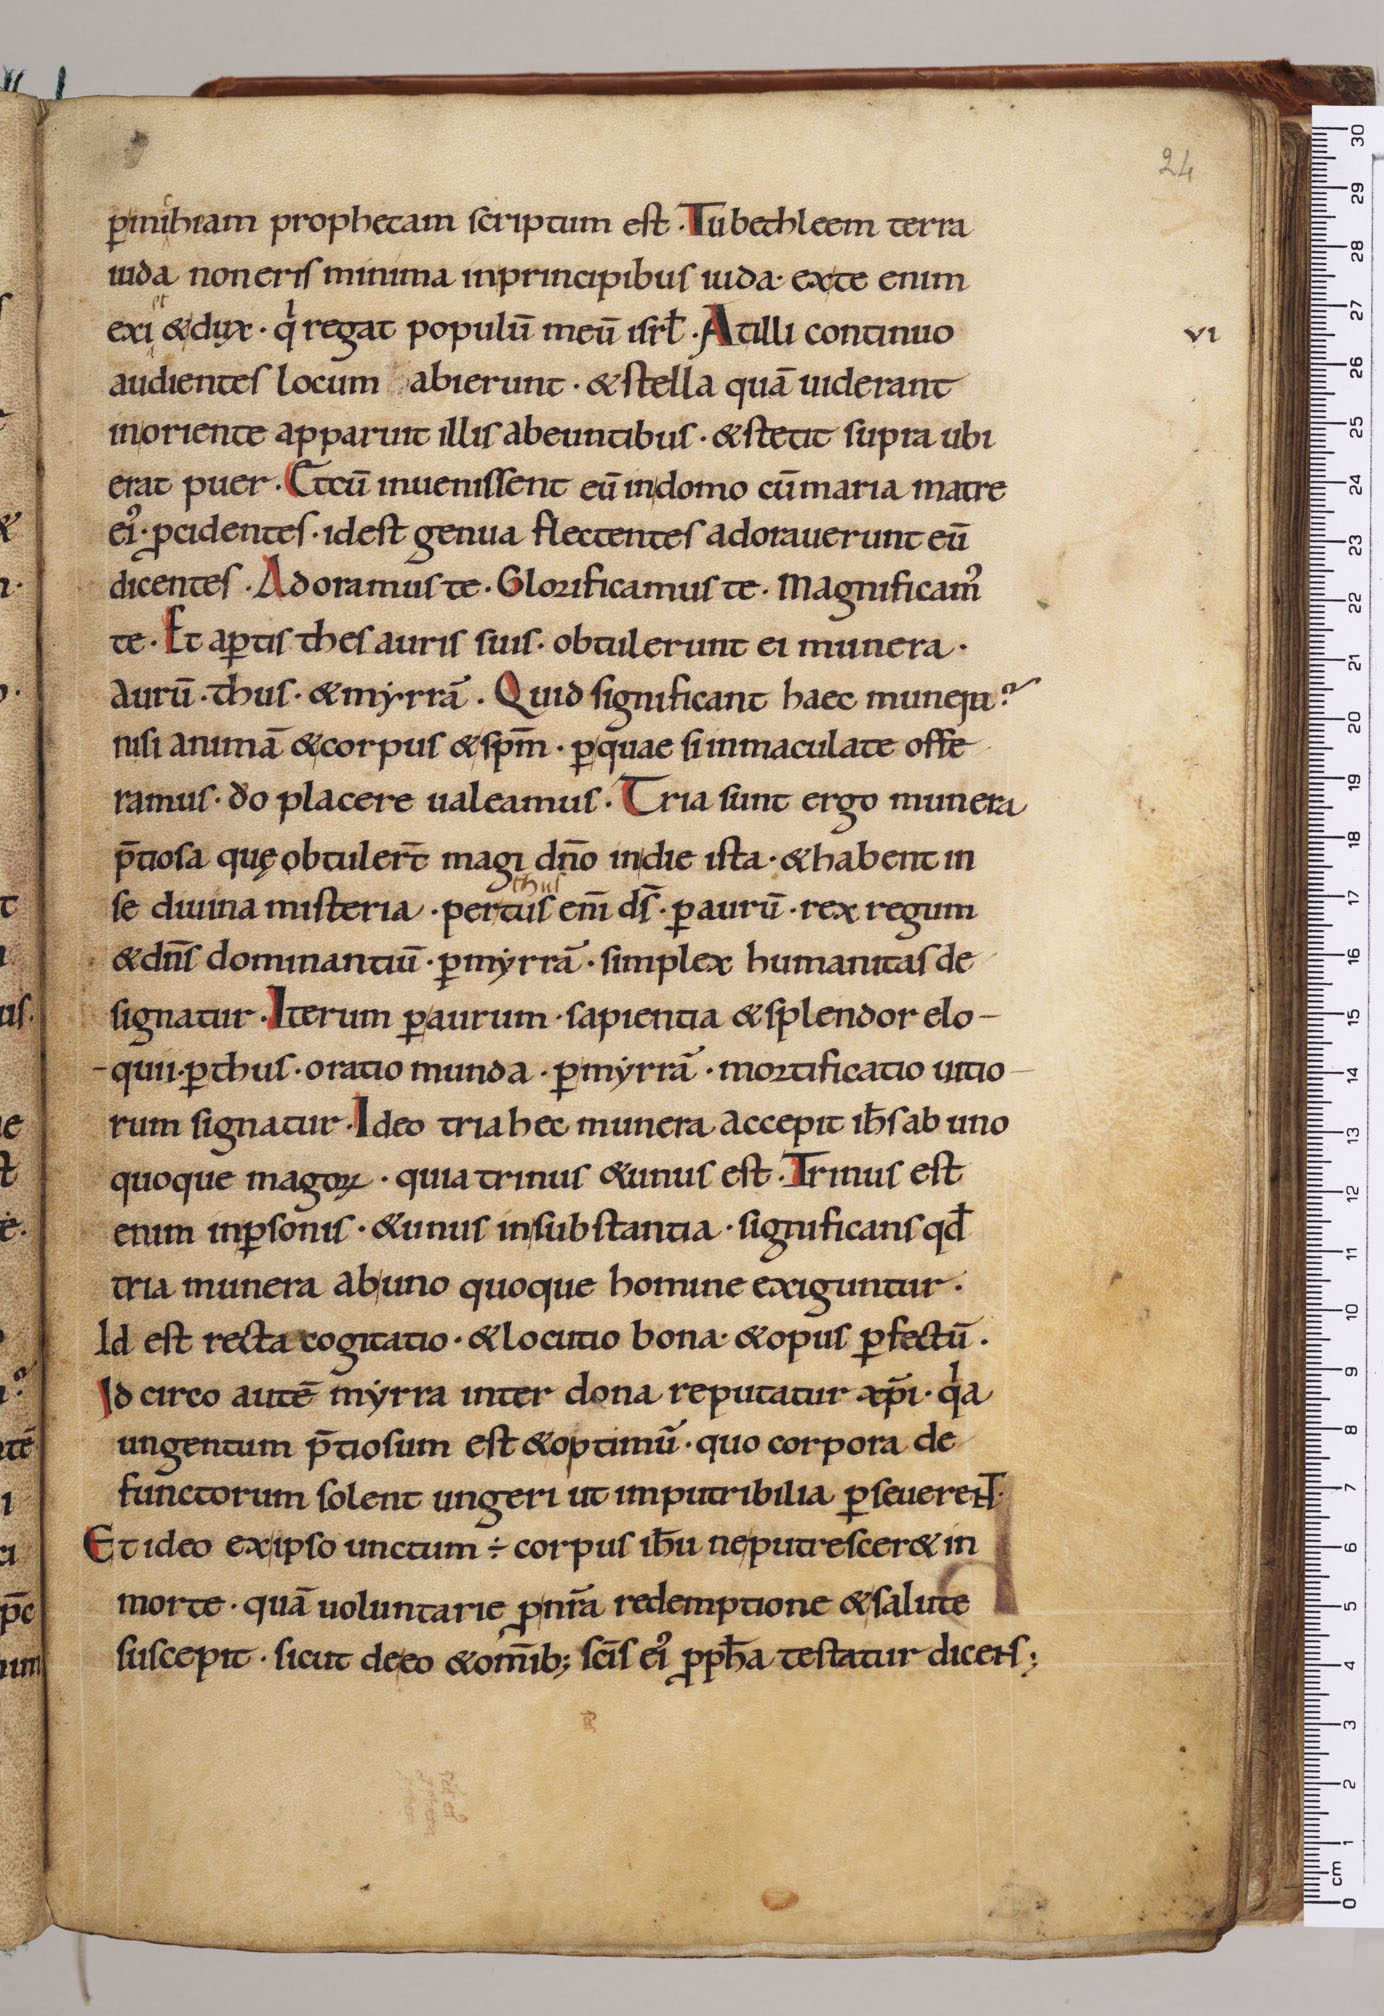 24
p̱miħiam prophetam scriptum est · Tu bethleem terra
iuda non eris minima in principibus iuda · ex te enim
et
exi & dux · qͥ regat populū meū isrł · At illi continuo
vi
audientes locum abierunt · & stella quā uiderant
in oriente apparuit illis abeuntibus · & stetit supra ubi
erat puer · Et cū inuenissent eū in domo cū maria matre
ei᾽ · p̱cidentes · id est genua flectentes adorauerunt eū
dicentes · Adoramus te · Glorificamus te · Magnificam᾽
te · Et ap̱tis thesauris suis · obtulerunt ei munera ·
aurū · thus · & mẏrrā · Quid significant haec munera?
nisi animā & corpus & spm̄ · p̱ quae si inmaculate offe
ramus · đo placere ualeamus · Tria sunt ergo munera
p̄tiosa quę obtuler̄t magi dn̄o in die ista · & habent in
thus
se diuina misteria · per tus eni̅ ds̄ · p̱ aurū · rex regum
& dn̄s dominantiū · p̱ mẏrrā · simplex humanitas de
signatur · Iterum p̱ aurum · sapientia & splendor elo-
-quii · p̱ thus · oratio munda · p̱ mẏrrā · mortificatio uitio
rum signatur · Ideo tria hec munera accepit ih̄s ab uno
quoque magoꝝ · quia trinus & unus est · Trinus est
enim in p̱sonis · & unus in substantia · significans qđ
tria munera ab uno quoque homine exiguntur ·
Id est recta cogitatio · & locutio bona · & opus p̱fectū ·
Idcirco autē mẏrra inter dona reputatur xp̄i · qͥa
ungentum p̄tiosum est & optimū · quo corpora de
functorum solent ungeri ut imputribilia p̱seuerent ·
Et ideo ex ipso unctum ÷ corpus ih̄u ne putrescer& in
morte · quā uoluntarie p̱ nr̄a redemptione & salute
suscepit · sicut de eo & om̄ib; sc̄is ei᾽ p̱ pph̄a testatur dicens;